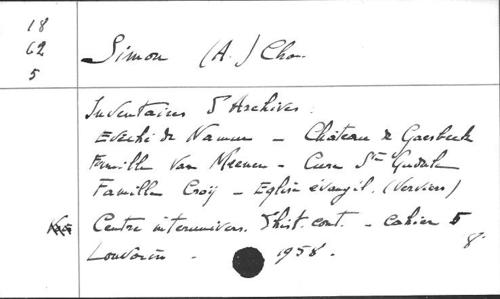 18
62
5
Simon (A.) Chan.
Inventaires d'Archives.
Evêché de Namur - Château de Gaesbeek
Famille Van Meenen - Cure Ste Gudule
Famille Croÿ - Eglise évangil. (Verviers)
Centre interunivers. d'hist. cont. - Cahier 5
8°
Louvain - 1958.